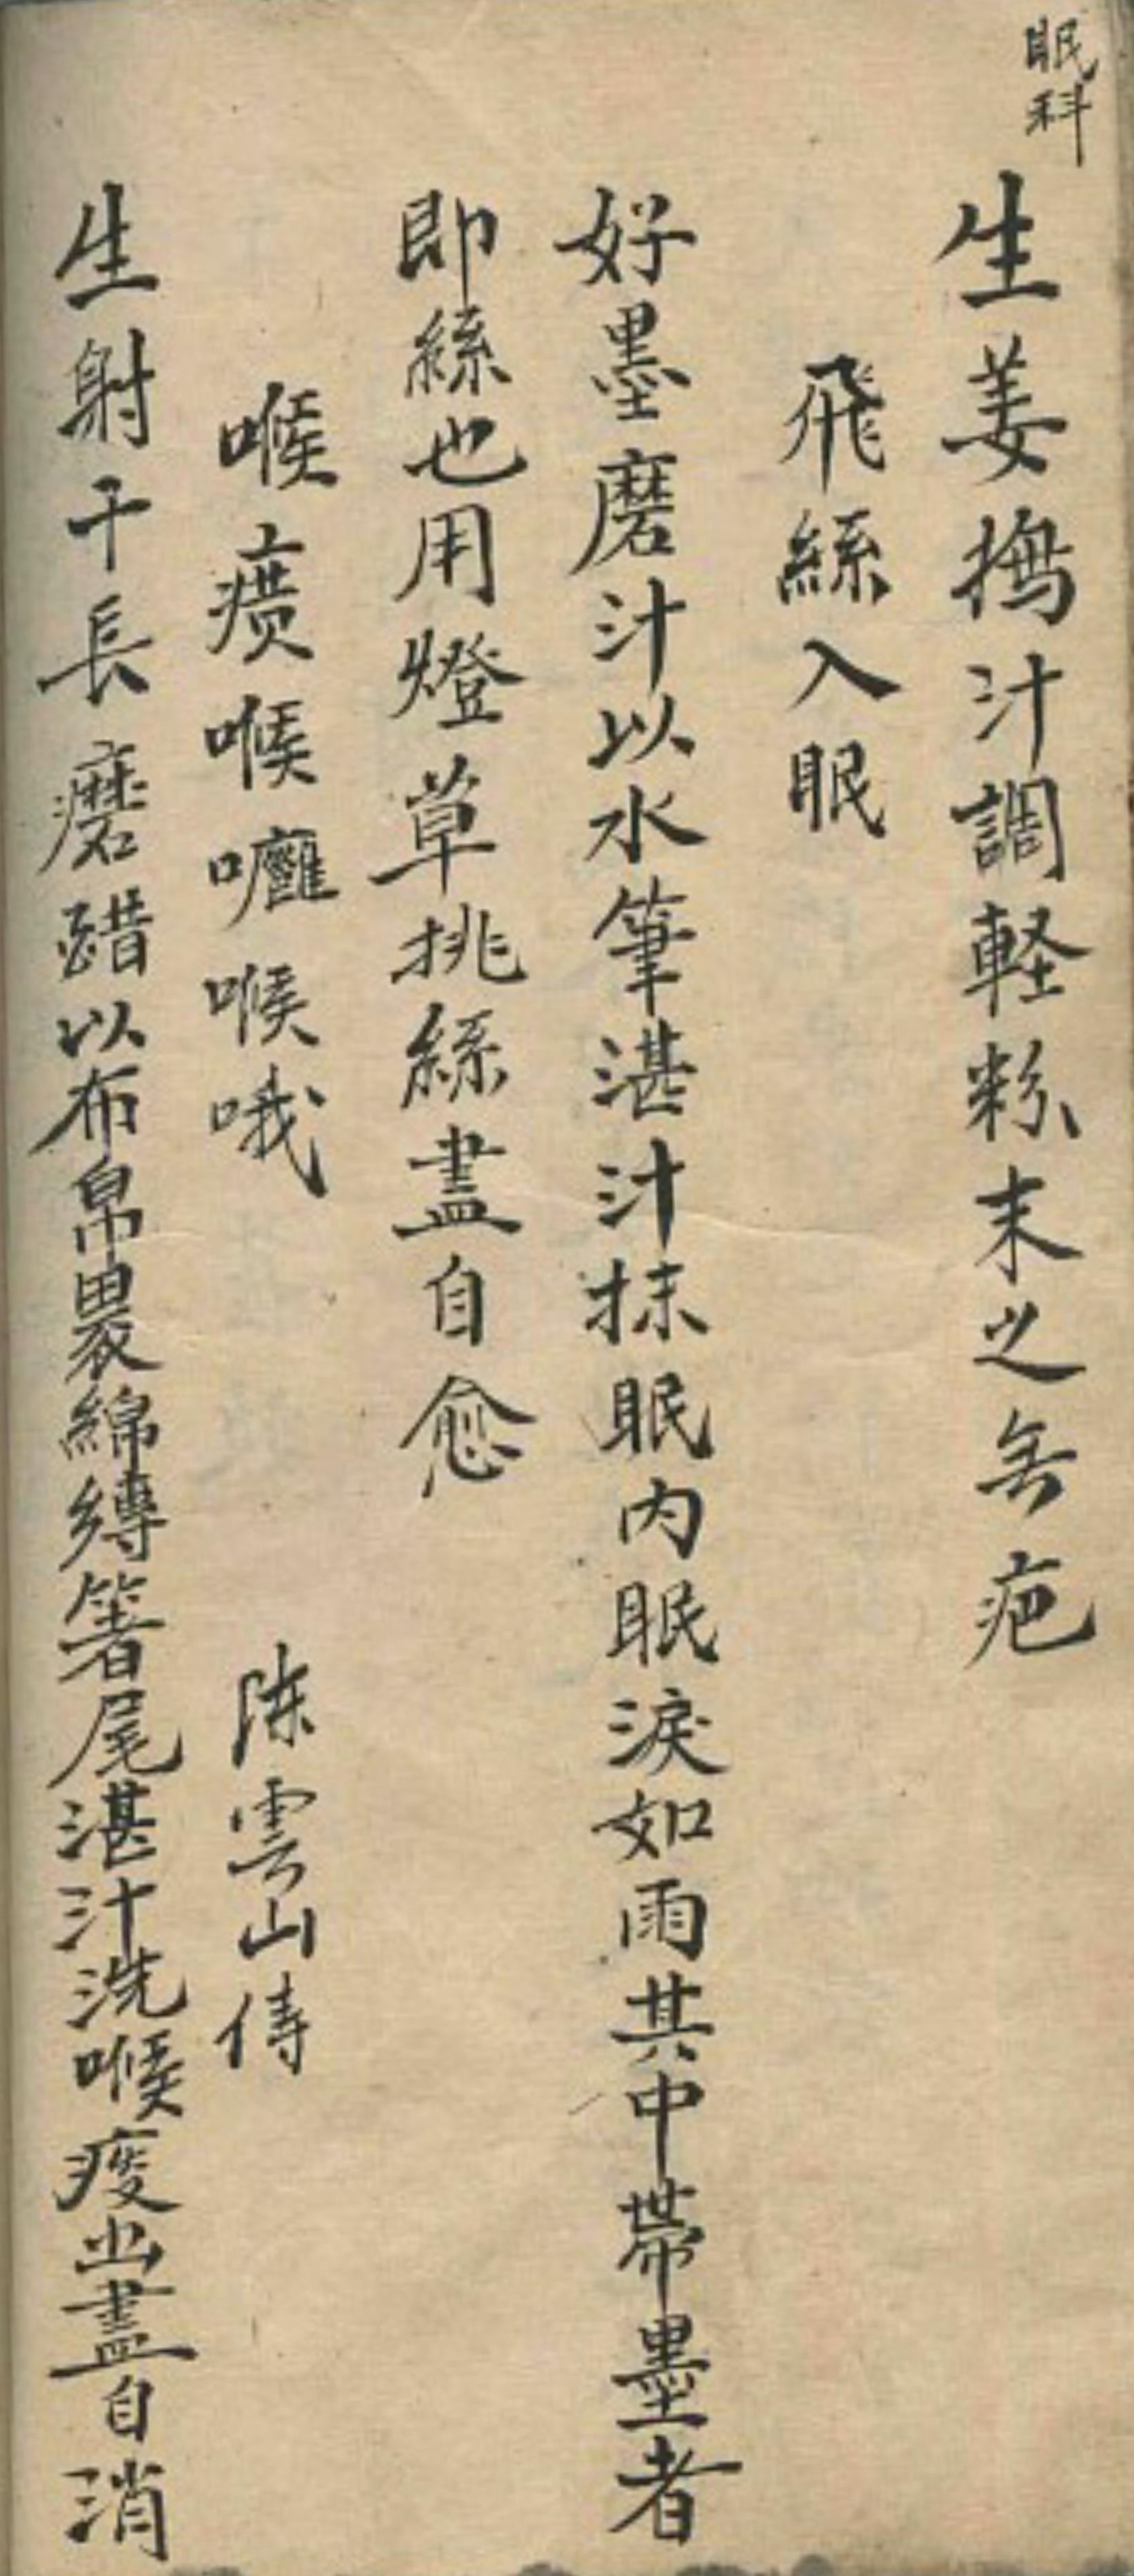 眠科
生姜撝汁調軽粉末之无疤
飛絲入眠
好墨磨汁以水筆湛汁抹眠内眠淚如雨其中帶墨者
即絲也用燈草挑絲盡自愈
喉癀喉嚨喉哦 陳雲山傳
生射干長磨醋以布帛裹綿縛箸尾湛汁洗喉痰出盡自消